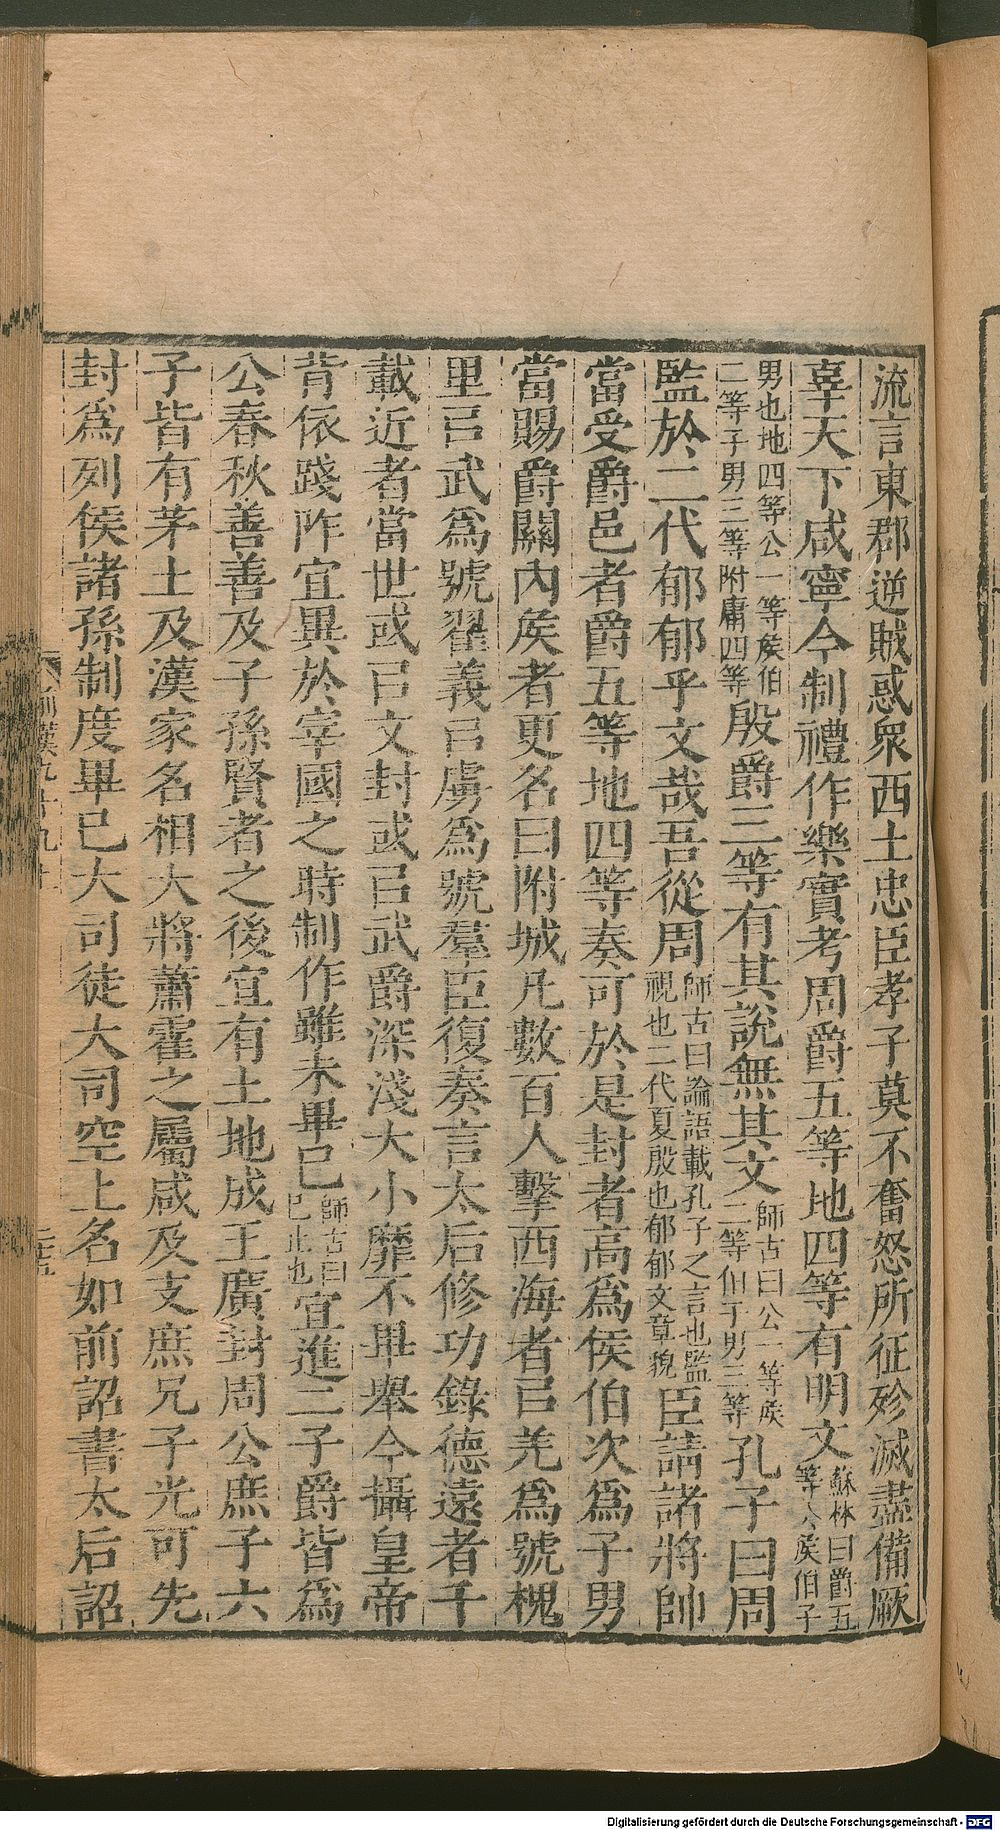 流言東郡逆賊惑眾西土忠臣孝子莫不奮怒所征殄滅盡備厥
辜天下咸寧今制禮作樂實考周爵五等地四等有明文蘇林曰爵五等公矦伯子
男也地四等公一等矦伯二等子男三等附庸四等殷爵三等有其說無其文師古曰公一等矦二等伯子男三等孔子曰周
監於二代郁郁乎文哉吾從周師古曰論語載孔子之言也監視也二代夏殷也郁郁文章貌臣請諸將帥
當受爵邑者爵五等地四等奏可於是封者高爲侯伯次爲子男
當賜爵關內矦者更名曰附城凡數百人擊西海者㠯羌爲號槐
里㠯武爲號翟義㠯虜爲號羣臣復奏言太后修功錄德遠者千
載近者當世或㠯文封或㠯武爵深淺大小靡不畢舉今攝皇帝
背依踐阼宜異於宰國之時制作雖未畢已師古曰已止也宜進二子爵皆爲
公春秋善善及子孫賢者之後宜有土地成王廣封周公庶子六
子皆有茅土及漢家名相大將蕭霍之屬咸及支庶兄子光可先
封爲列侯諸孫制度畢已大司徒大司空上名如前詔書太后詔
Digitalisierung gefördert durch die Deutsche Forschungsgemeinschaft - DFG